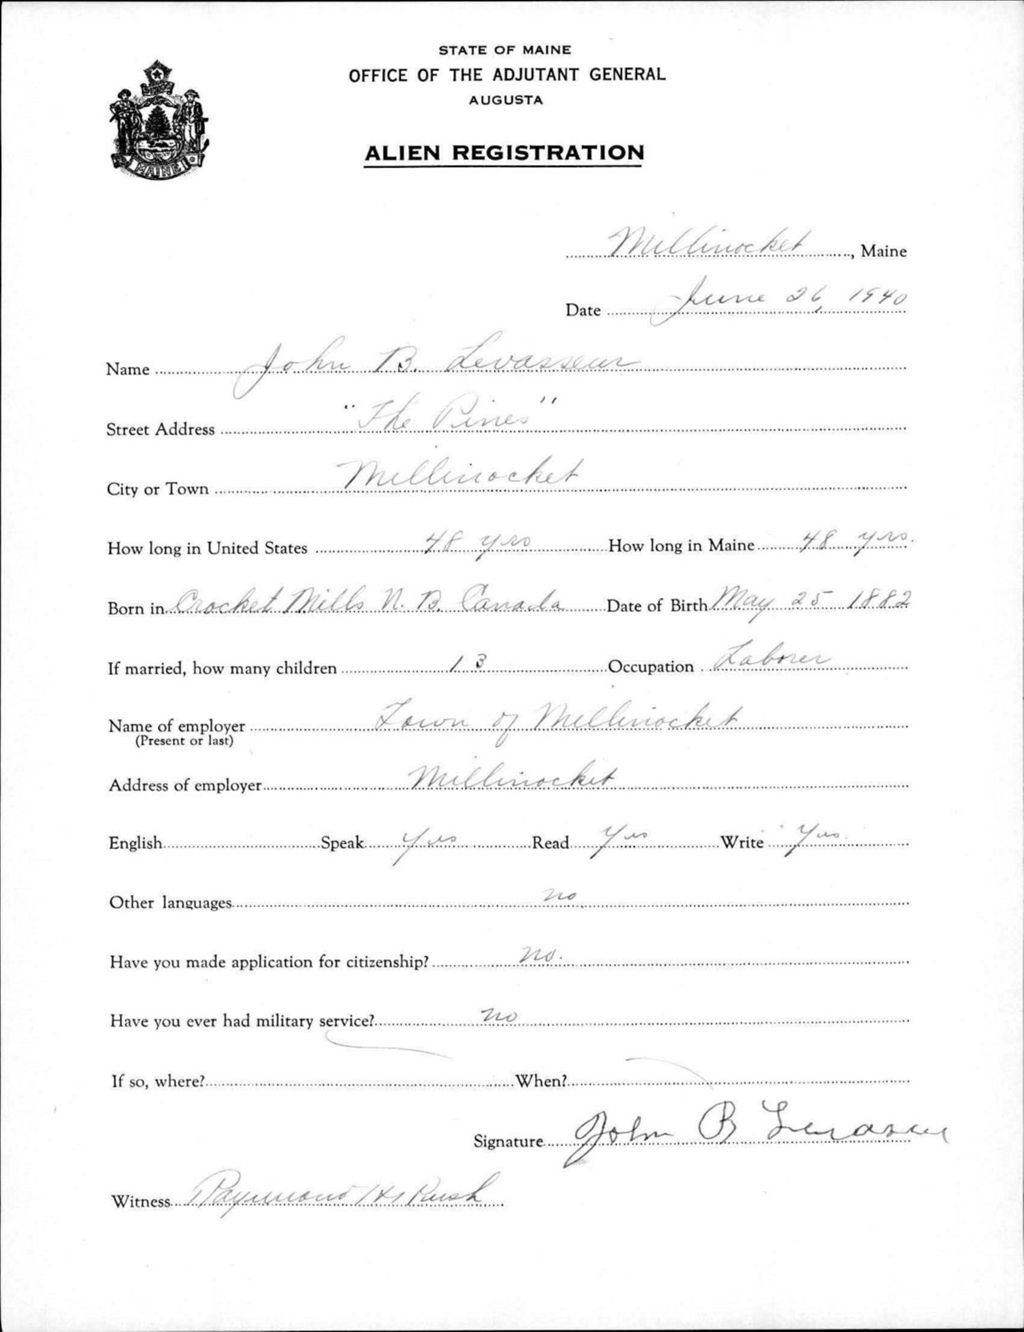 STATE OF MAINE
OFFICE OF THE ADJUTANT GENERAL
AUGUSTA
ALIEN REGISTRATION
MAINE
Millinocket, Maine
Date June 26, 1940
Name John B. Levasseur
Street Address "The Pines"
City or Town Millinocket
How long in United States 48 yrs How long in Maine 48 yrs.
Born in Crocket Mills N. B. Canada Date of Birth May 25 1882
If married, how many children 13 Occupation Laborer
Name of employer Town of Millinocket
(Present or last)
Address of employer Millinocket
English Speak Yes Read Yes Write Yes
Other languages no
Have you made application for citizenship? no.
Have you ever had military service? no
If so, where? When?
Signature John B Levasseur
Witness Raymond H. Rush